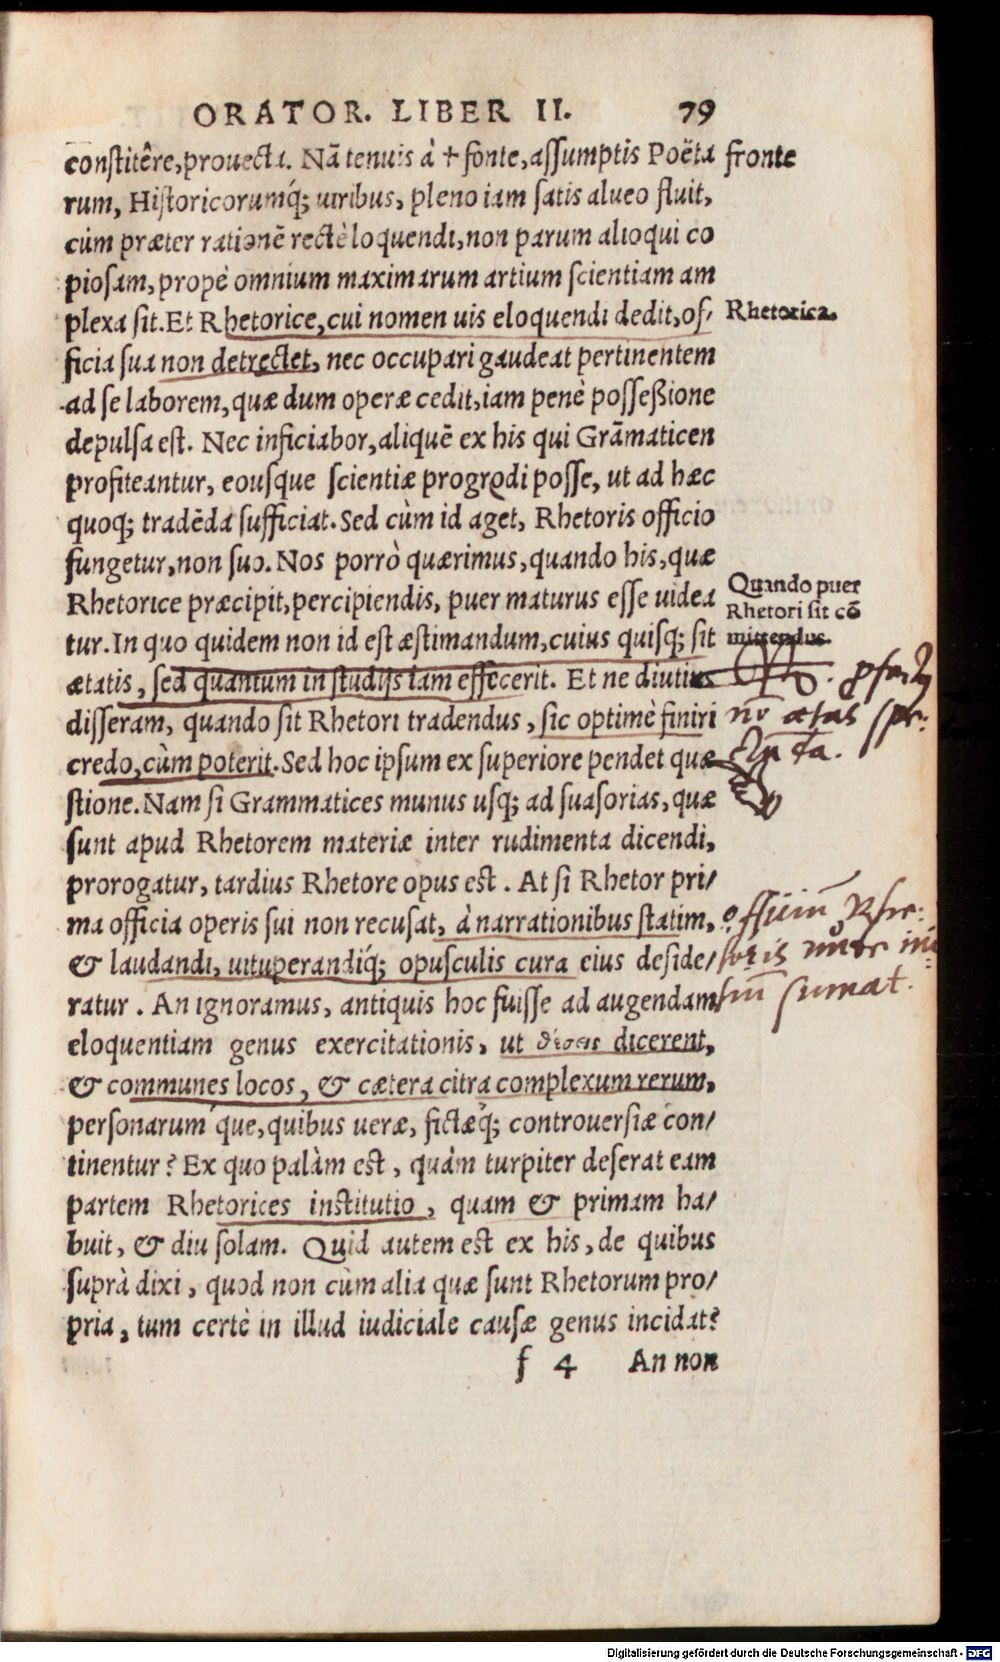 ORATOR. LIBER II. 79
constitêre,prouecta. Nā tenuis à † fonte,assumptis Poëta fronte
rum, Historicorumq́; uiribus, pleno iam satis alueo fluit,
cùm præter rationē rectè loquendi,non parum alioqui co
piosam,propè omnium maximarum artium scientiam am
plexa sit.Et Rhetorice,cui nomen uis eloquendi dedit,of/
Rhetorica.
ficia sua non detrectet, nec occupari gaudeat pertinentem
ad se laborem,quæ dum operæ cedit,iam penè possessione
depulsa est. Nec inficiabor,aliquē ex his qui Grāmaticen
profiteantur, eousque scientiæ progredi posse, ut ad hæc
quoq; tradēda sufficiat.Sed cùm id aget, Rhetoris officio
fungetur,non suo. Nos porrò quærimus,quando his,quæ
Rhetorice præcipit,percipiendis, puer maturus esse uidea
Quando puer
Rhetori sit cō
mittendus.
tur.In quo quidem non id est æstimandum,cuius quisq; sit
ætatis, sed quantum in studijs iam effecerit. Et ne diutius
disseram, quando sit Rhetori tradendus, sic optimè finiri
credo,cùm poterit.Sed hoc ipsum ex superiore pendet quæ
stione.Nam si Grammatices munus usq; ad suasorias,quæ
sunt apud Rhetorem materiæ inter rudimenta dicendi,
prorogatur, tardius Rhetore opus est. At si Rhetor pri/
ma officia operis sui non recusat, à narrationibus statim,
& laudandi, uituperandiq́; opusculis cura eius deside/
ratur. An ignoramus, antiquis hoc fuisse ad augendam
eloquentiam genus exercitationis, ut θέσεις dicerent,
& communes locos, & cætera citra complexum rerum,
personarum que,quibus ueræ, fictæq́; controuersiæ con/
tinentur? Ex quo palàm est, quàm turpiter deserat eam
partem Rhetorices institutio, quam & primam ha/
buit, & diu solam. Quid autem est ex his, de quibus
suprà dixi, quod non cùm alia quæ sunt Rhetorum pro/
pria, tum certè in illud iudiciale causæ genus incidat?
f 4 An non
nō ætas
officiū Rhe:
toris
sumat.
Digitalisierung gefördert durch die Deutsche Forschungsgemeinschaft - DFG